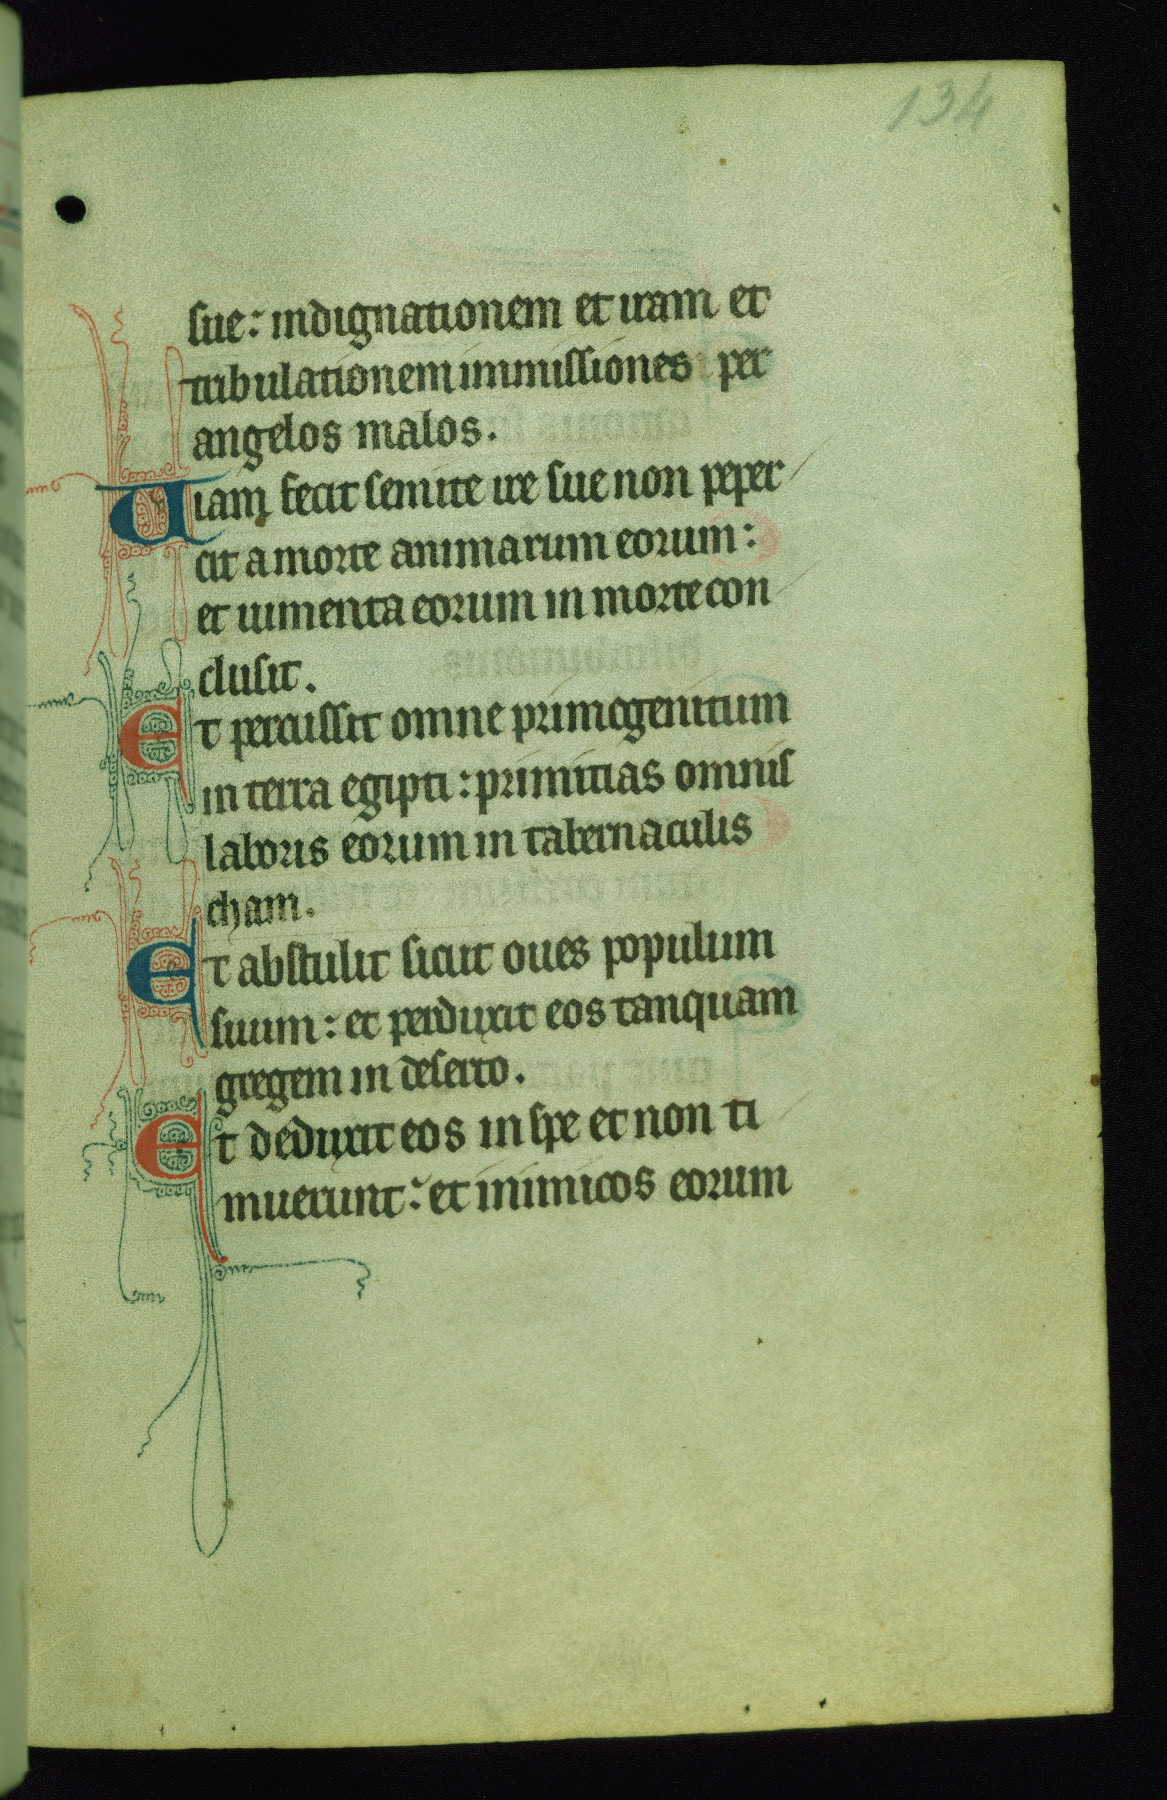 134
sue: indignationem et iram et
tribulationem inmissiones per
angelos malos.
Uiam fecit semite ire sue non peper
cit a morte animarum eorum:
et iumenta eorum in morte con
clusit.
Et percussit omne primogenitum
in terra egipti: primitias omnis
laboris eorum in tabernaculis
cham.
Et abstulit sicut oues populum
suum: et perduxit eos tanquam
gregem in deserto.
Et deduxit eos in spe et non ti
muerunt: et inimicos eorum